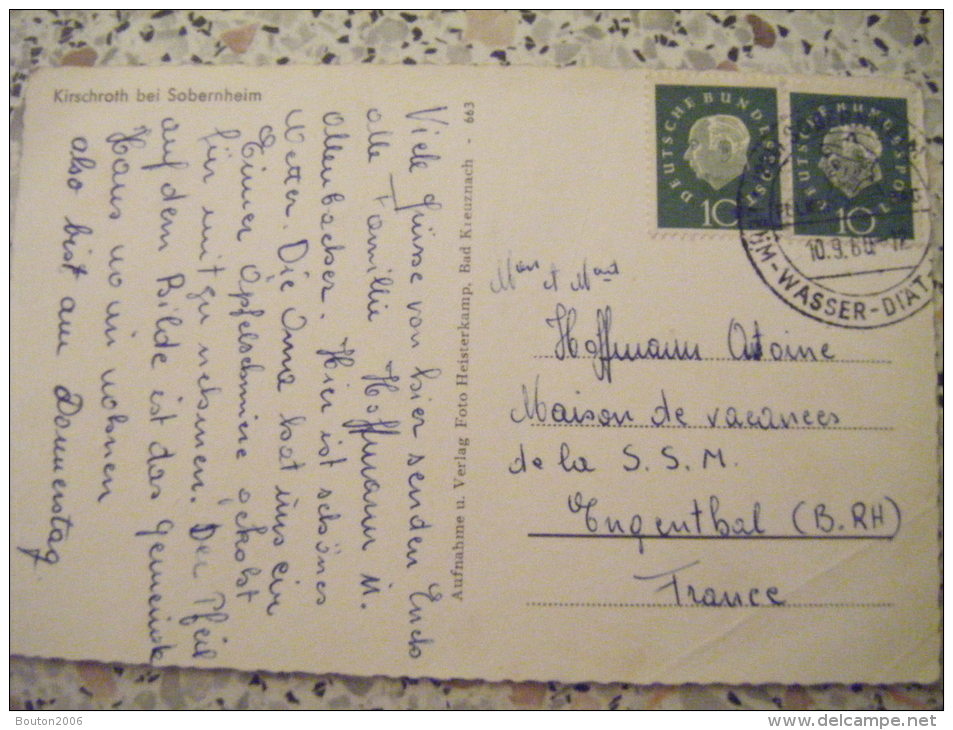 Kirschroth bei Sobernheim
Viele Grüsse von hier senden Euch
alle Familie Hoffmann M.
Ollenbacher. Hier ist schönes
Wetter. Die Oma hat uns ein
Eimer Äpfelschmiere gekobt
für mit zu nehmen. Der Pfeil
auf dem Bilde ist das Gemeinde
Haus wo wir wohnen
also bist am Donnerstag.
Aufnahme u. Verlag Foto Heisterkamp, Bad Kreuznach - 663
DEUTSCHE BUNDESPOST
10
DEUTSCHE BUNDESPOST
10
10.9.60-12
WASSER-DIÄT
Hoffmann Antoine
Maison de vacances
de la S. S. M.
Engenthal (B.RH)
France
Bouton2006